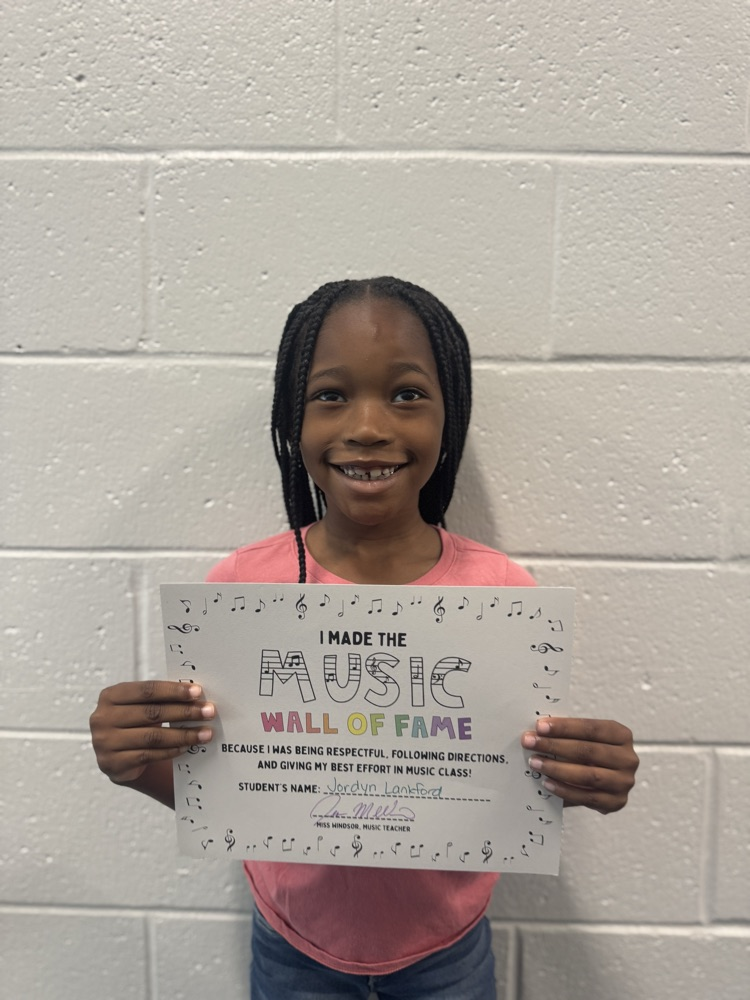 I MADE THE
MUSIC
WALL OF FAME
BECAUSE I WAS BEING RESPECTFUL, FOLLOWING DIRECTIONS,
AND GIVING MY BEST EFFORT IN MUSIC CLASS!
STUDENT'S NAME: Jordyn Lankford
MISS WINDSOR, MUSIC TEACHER